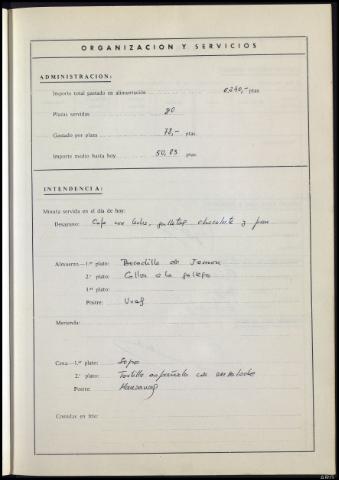 ORGANIZACION Y SERVICIOS
ADMINISTRACION:
Importe total gastado en alimentación 6.240,- ptas.
Plazas servidas 80
Gastado por plaza 78,- ptas.
Importe medio hasta hoy 50,83 ptas.
INTENDENCIA:
Minuta servida en el día de hoy:
Desayuno: Cafe con leche, galletas chocolate y pan
Almuerzo.—1.er plato: de Jamon
2.º plato: Callos a la gallega
3.er plato:
Postre: Uvas
Merienda:
Cena.—1.er plato: Sopa
2.º plato: Tortilla española con ensalada
Postre: Manzanas
Comidas en frío: